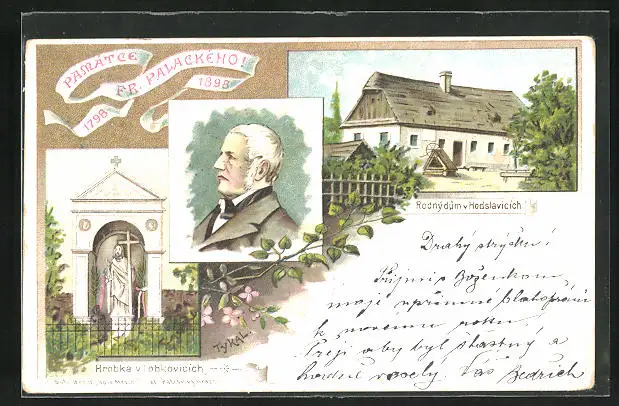 PAMÁTCE
FR. PALACKÉHO!
1798 1898
Rodný dům v Hodslavicích
Hrobka v Lobkovicích
TYKAL
Drahý strýčku!
Přijmi s Boženkou
moje upřímné blahopřání
k novému roku.
Přeji aby byl šťastný a
hodně veselý. Váš Bedřich